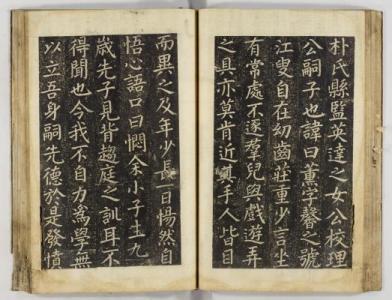 朴氏縣監英達之女公校理
公嗣子也諱曰薰字馨之號
江叟自在幼齒莊重少言坐
有常處不逐羣兒與戲遊弄
之具亦莫肯近其手人皆目
而異之及年少長一日惕然自
悟心語口曰憫余小子生九
歲先子見背趨庭之訓耳不
得聞也今我不自力為學無
以立吾身嗣先德於是發憤